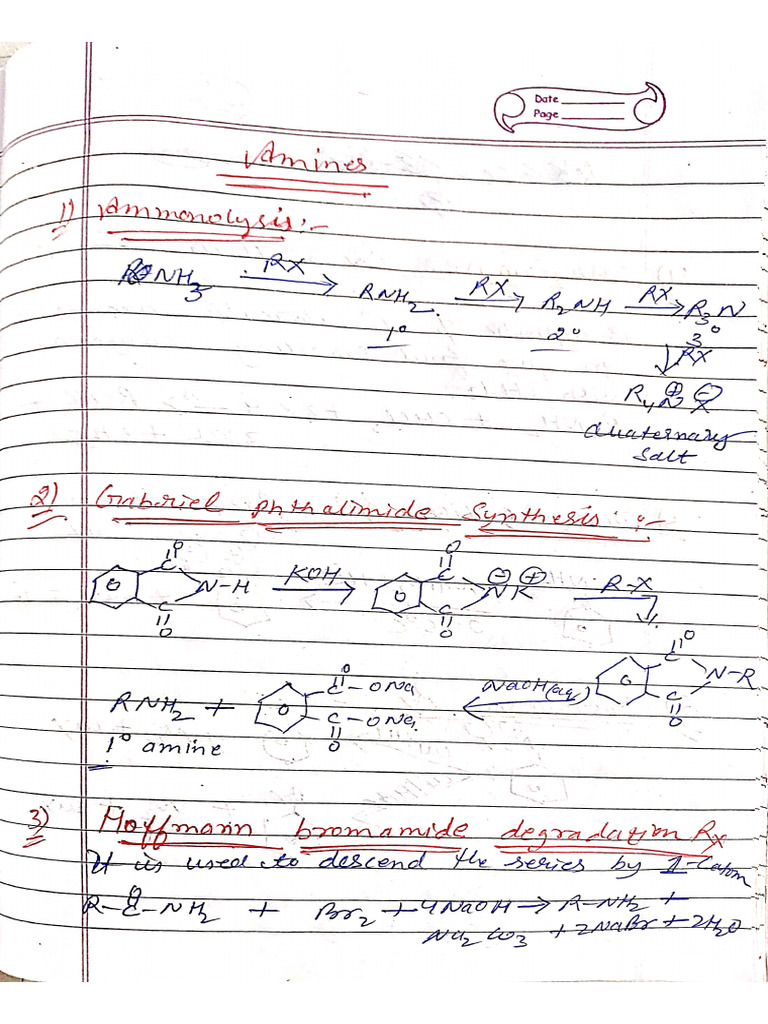 Date
Page
Amines
1) Ammonolysis :-
NH3 —RX→ RNH2 —RX→ R2NH —RX→ R3N
1° 2° 3°
↓ RX
R4N⊕ X⊖
Quaternary
Salt
2) Gabriel phthalimide Synthesis :-
O O
C C ⊖ ⊕
N-H —KOH→ NK —R-X→
C C
O O
O
C
N-R
C
O
O
C-ONa
RNH2 + ←NaOH(aq)—
C-ONa
O
1° amine
3) Hoffmann bromamide degradation Rx
It is used to descend the series by 1-C atom
O
R-C-NH2 + Br2 + 4NaOH → R-NH2 +
Na2CO3 + 2NaBr + 2H2O